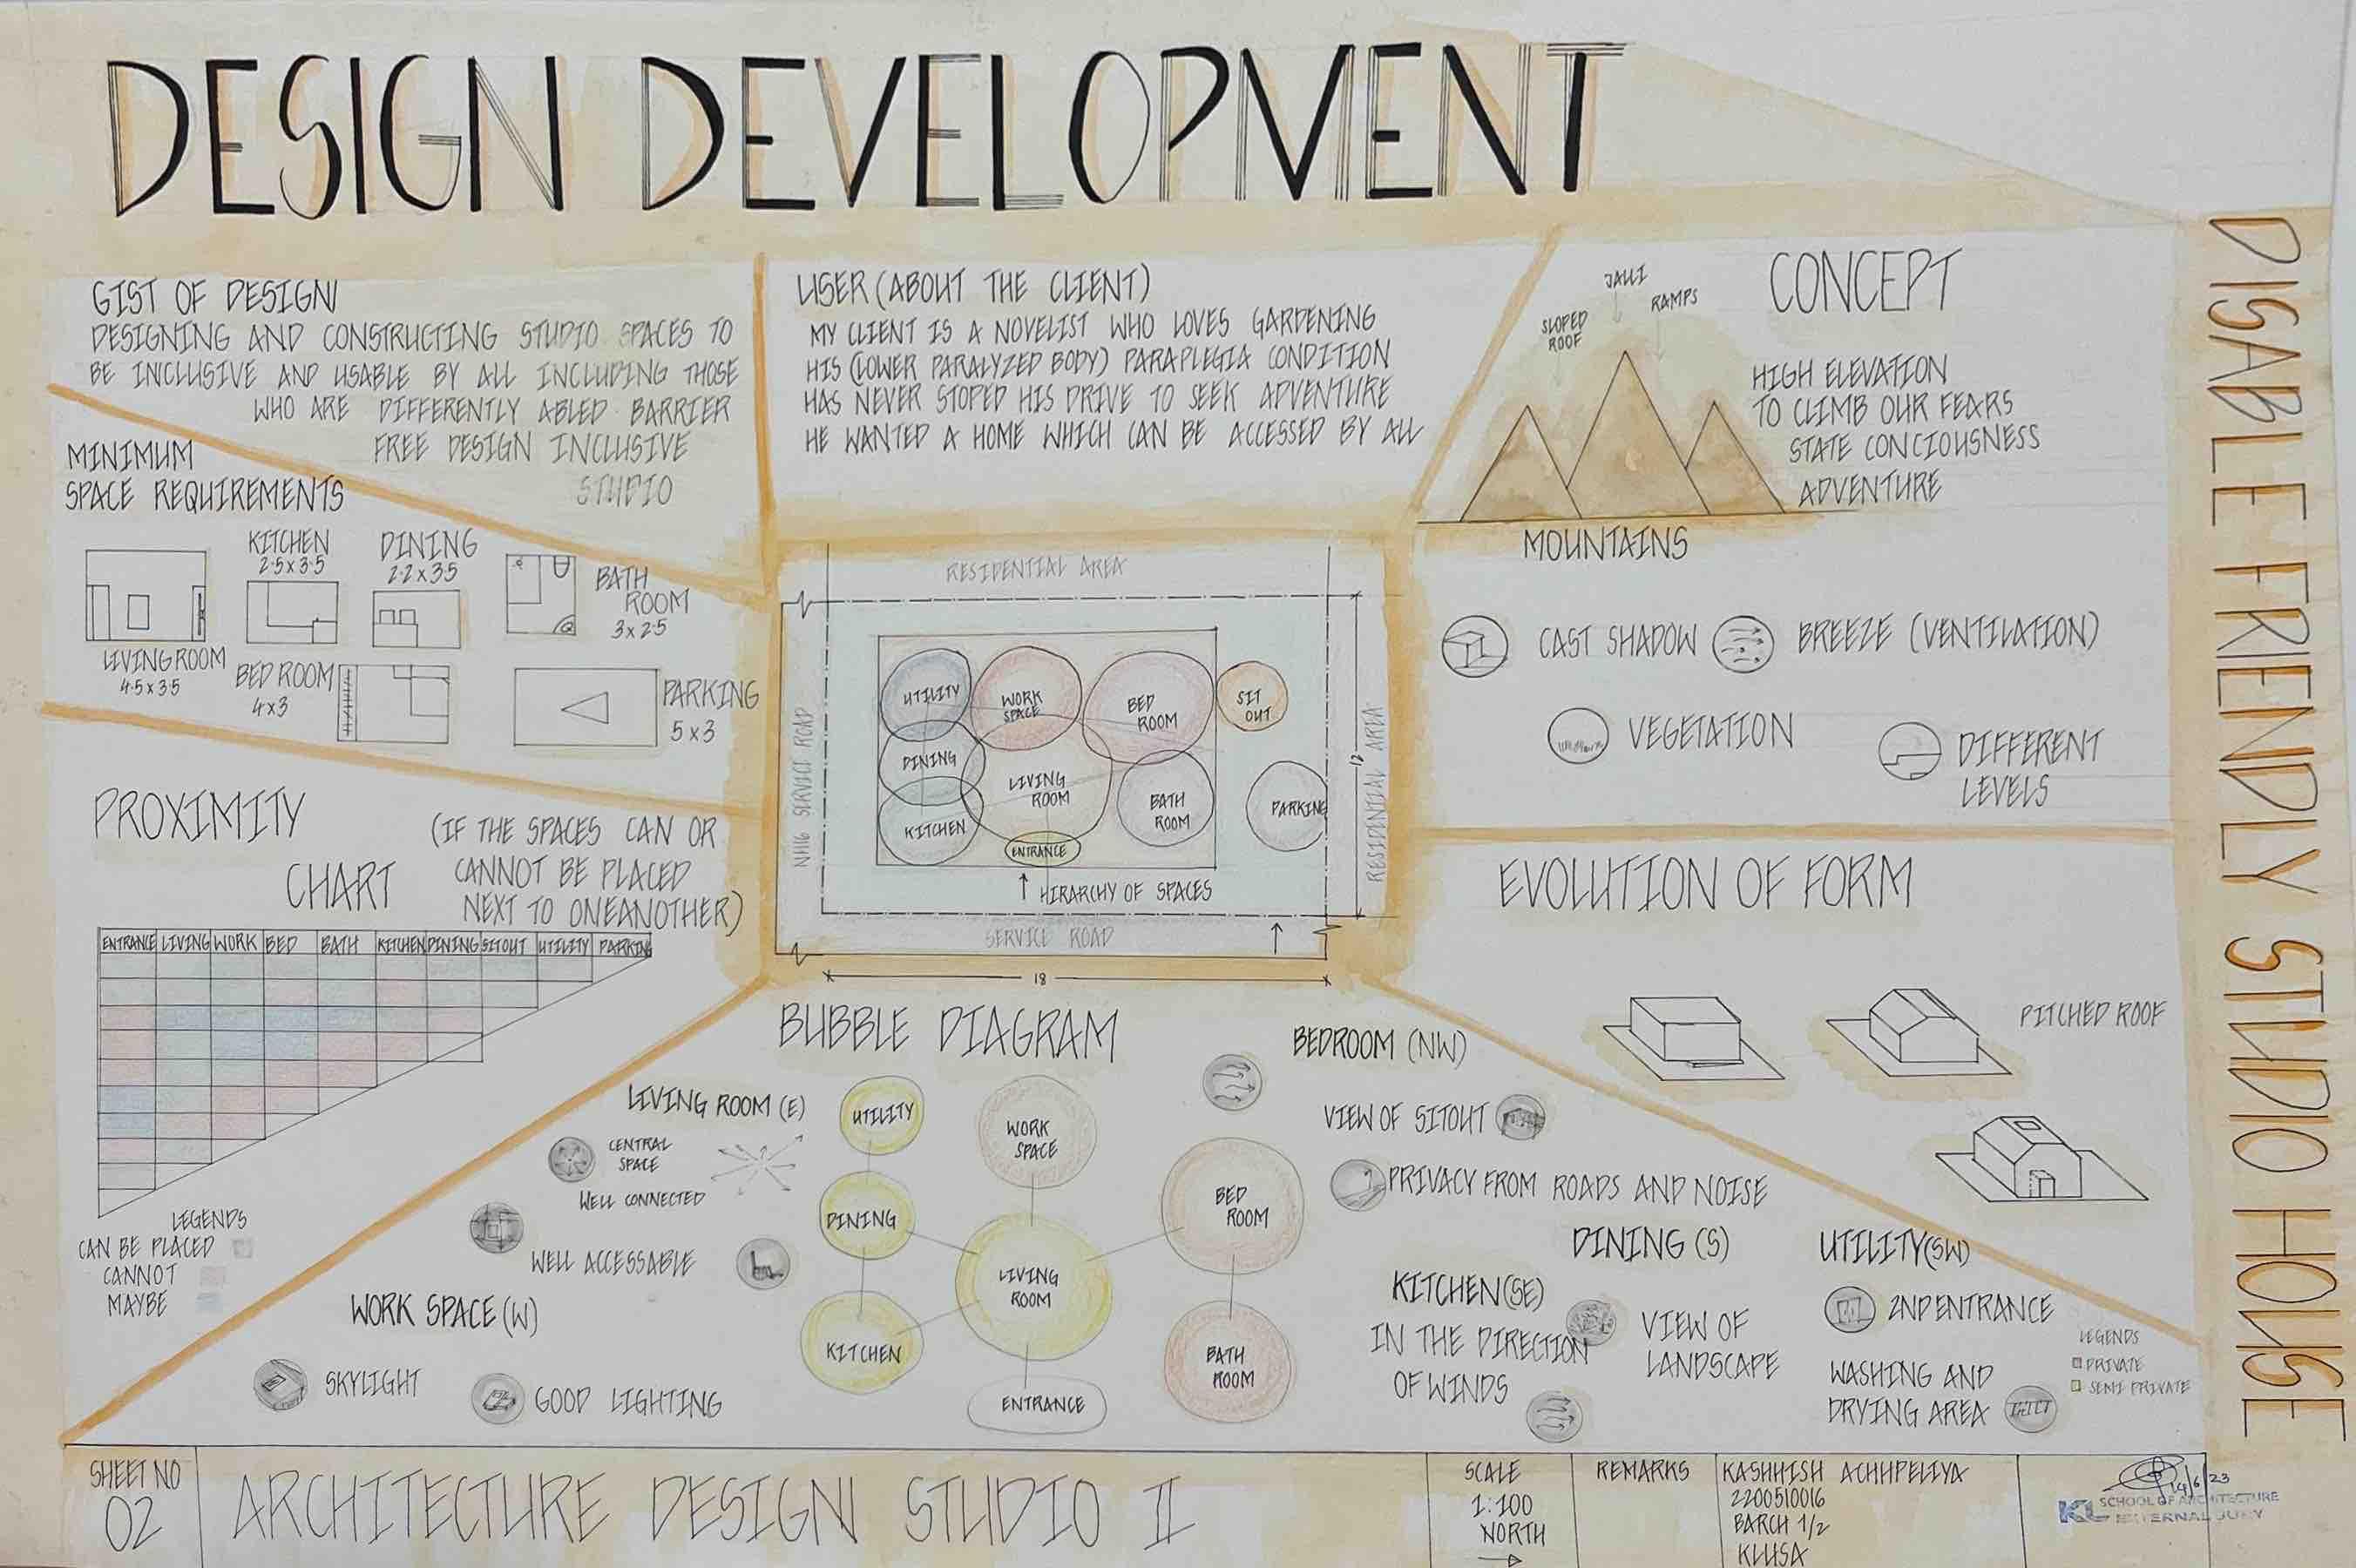 DESIGN DEVELOPMENT
DISABLE FRIENDLY STUDIO HOUSE
GIST OF DESIGN
DESIGNING AND CONSTRUCTING STUDIO SPACES TO
BE INCLUSIVE AND USABLE BY ALL INCLUDING THOSE
WHO ARE DIFFERENTLY ABLED. BARRIER
FREE DESIGN INCLUSIVE
STUDIO
USER (ABOUT THE CLIENT)
MY CLIENT IS A NOVELIST WHO LOVES GARDENING
HIS (LOWER PARALYZED BODY) PARAPLEGIA CONDITION
HAS NEVER STOPED HIS DRIVE TO SEEK ADVENTURE
HE WANTED A HOME WHICH CAN BE ACCESSED BY ALL
CONCEPT
SLOPED
ROOF
JALLI
RAMPS
HIGH ELEVATION
TO CLIMB OUR FEARS
STATE CONCIOUSNESS
ADVENTURE
MOUNTAINS
CAST SHADOW
BREEZE (VENTILATION)
VEGETATION
DIFFERENT
LEVELS
MINIMUM
SPACE REQUIREMENTS
LIVING ROOM
4.5 x 3.5
KITCHEN
2.5 x 3.5
DINING
2.2 x 3.5
BATH
ROOM
3 x 2.5
BED ROOM
4 x 3
PARKING
5 x 3
PROXIMITY
CHART
(IF THE SPACES CAN OR
CANNOT BE PLACED
NEXT TO ONEANOTHER)
ENTRANCE LIVING WORK BED BATH KITCHEN DINING SITOUT UTILITY PARKING
LEGENDS
CAN BE PLACED
CANNOT
MAYBE
RESIDENTIAL AREA
NH16 SERVICE ROAD
RESIDENTIAL AREA
12
UTILITY
WORK
SPACE
BED
ROOM
SIT
OUT
DINING
LIVING
ROOM
BATH
ROOM
PARKING
KITCHEN
ENTRANCE
HIRARCHY OF SPACES
SERVICE ROAD
18
BUBBLE DIAGRAM
UTILITY
WORK
SPACE
DINING
BED
ROOM
LIVING
ROOM
KITCHEN
BATH
ROOM
ENTRANCE
LIVING ROOM (E)
CENTRAL
SPACE
WELL CONNECTED
WELL ACCESSABLE
WORK SPACE (W)
SKYLIGHT
GOOD LIGHTING
BEDROOM (NW)
VIEW OF SITOUT
PRIVACY FROM ROADS AND NOISE
KITCHEN (SE)
IN THE DIRECTION
OF WINDS
DINING (S)
VIEW OF
LANDSCAPE
UTILITY (SW)
2ND ENTRANCE
WASHING AND
DRYING AREA
LEGENDS
PRIVATE
SEMI PRIVATE
EVOLUTION OF FORM
PITCHED ROOF
SHEET NO
02
ARCHITECTURE DESIGN STUDIO II
SCALE
1:100
NORTH
REMARKS
KASHHISH ACHHPELIYA
2200510016
BARCH 1/2
KLUSA
KL SCHOOL OF ARCHITECTURE
EXTERNAL JURY